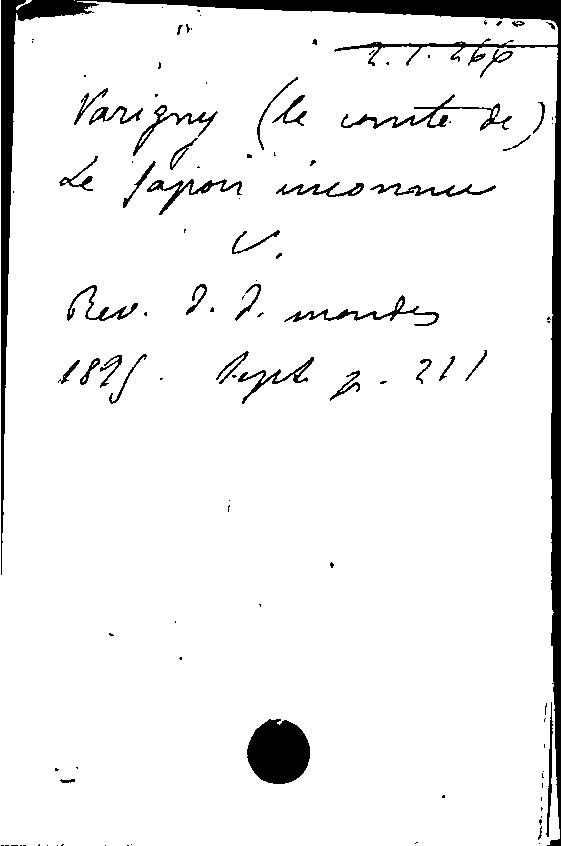 2.1.266
Varigny (le comte de)
Le Japon inconnu
V.
Rev. d. d. mondes
1895. Sept. p. 211